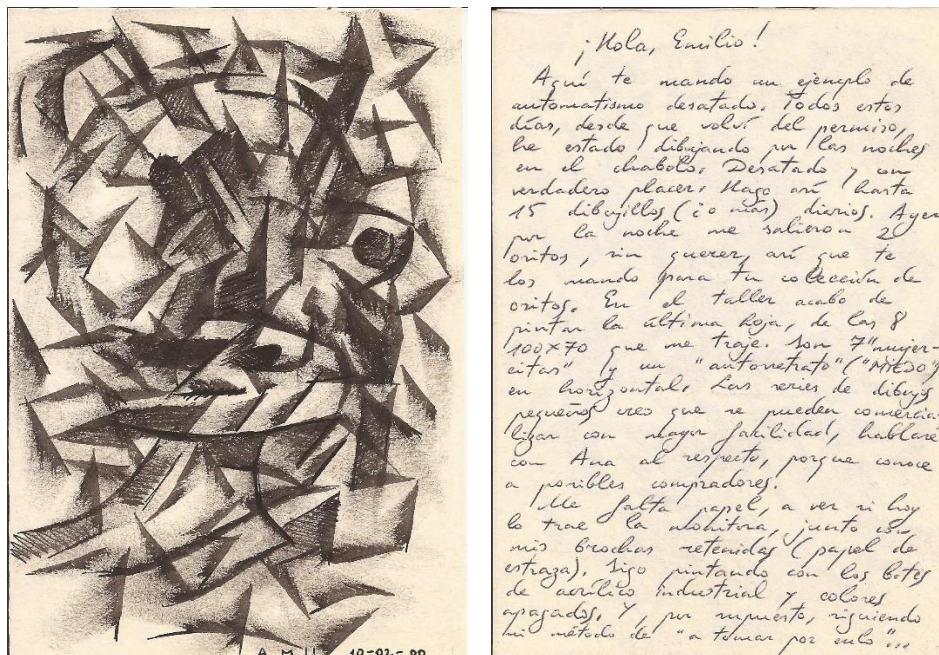 A M 10-02-00
¡Hola, Emilio!
Aquí te mando un ejemplo de
automatismo desatado. Todos estos
días, desde que volví del permiso,
he estado dibujando por las noches
en el chabolo. Desatado y con
verdadero placer. Hago así hasta
15 dibujillos (¿o más) diarios. Ayer
por la noche me salieron 2
ositos, sin querer, así que te
los mando para tu colección de
ositos. En el taller acabo de
pintar la última hoja, de las 8
100x70 que me traje. Son 7 "mujer-
citas" y un "autorretrato" ("MIEDO")
en horizontal. Las series de dibujos
pequeños, creo que se pueden comercia
lizar con mayor facilidad, hablaré
con Ana al respecto, porque conoce
a posibles compradores.
Me falta papel, a ver si hoy
lo trae la monitora, junto con
mis brochas retenidas (papel de
estraza). Sigo pintando con los botes
de acrílico industrial y colores
apagados. Y, por supuesto, siguiendo
mi método de "a tomar por culo"...